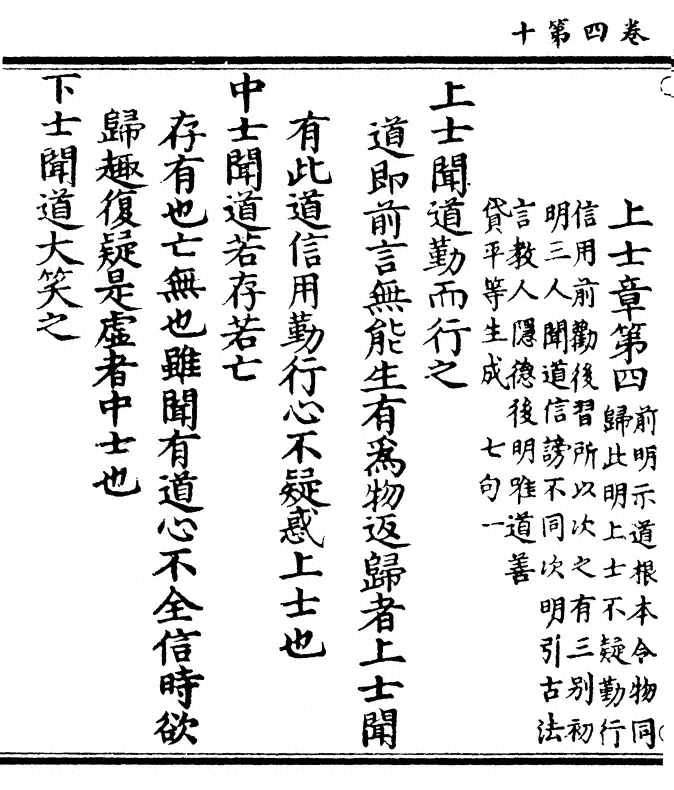 卷四第十
上士章第四
前明示道根本令物同
歸此明上士不疑勤行
信用前勸後習所以次之有三別初
明三人聞道信謗不同次明引古法
言教人隱德後明唯道善
貸平等生成 七句一
上士聞道勤而行之
道即前言無能生有爲物返歸者上士聞
有此道信用勤行心不疑惑上士也
中士聞道若存若亡
存有也亡無也雖聞有道心不全信時欲
歸趣復疑是虛者中士也
下士聞道大笑之